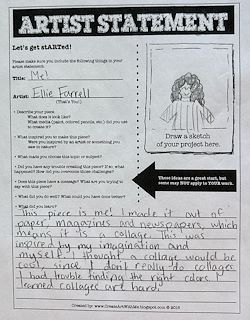 ARTIST STATEMENT
Let's get stARTed!
Please make sure you include the following things in your
artist statement:
Title: Me!
Artist: Ellie Farrell
(That's You!)
• Describe your piece.
What does it look like?
What media (paint, colored pencils, etc.) did you use
to create it?
• What inspired you to make this piece?
Were you inspired by an artist or something you
saw in nature?
• What made you choose this topic or subject?
• Did you have any trouble creating this piece? If so, what
happened? How did you overcome those challenges?
• Does this piece have a message? What are you trying to
say with this piece?
• What did you do well? What could you have done better?
• What did you learn?
Draw a sketch
of your project here.
These ideas are a great start, but
some may NOT apply to YOUR work.
This piece is me! I made it out of
paper, magazines and newspapers, which
means it is a collage. This was
inspired by my imagination and
myself. I thought a collage would be
cool, since I don't really do collages.
I had trouble finding the right colors. I
learned collages are hard.
Created by: www.CreateArtWithMe.blogspot.com © 2013